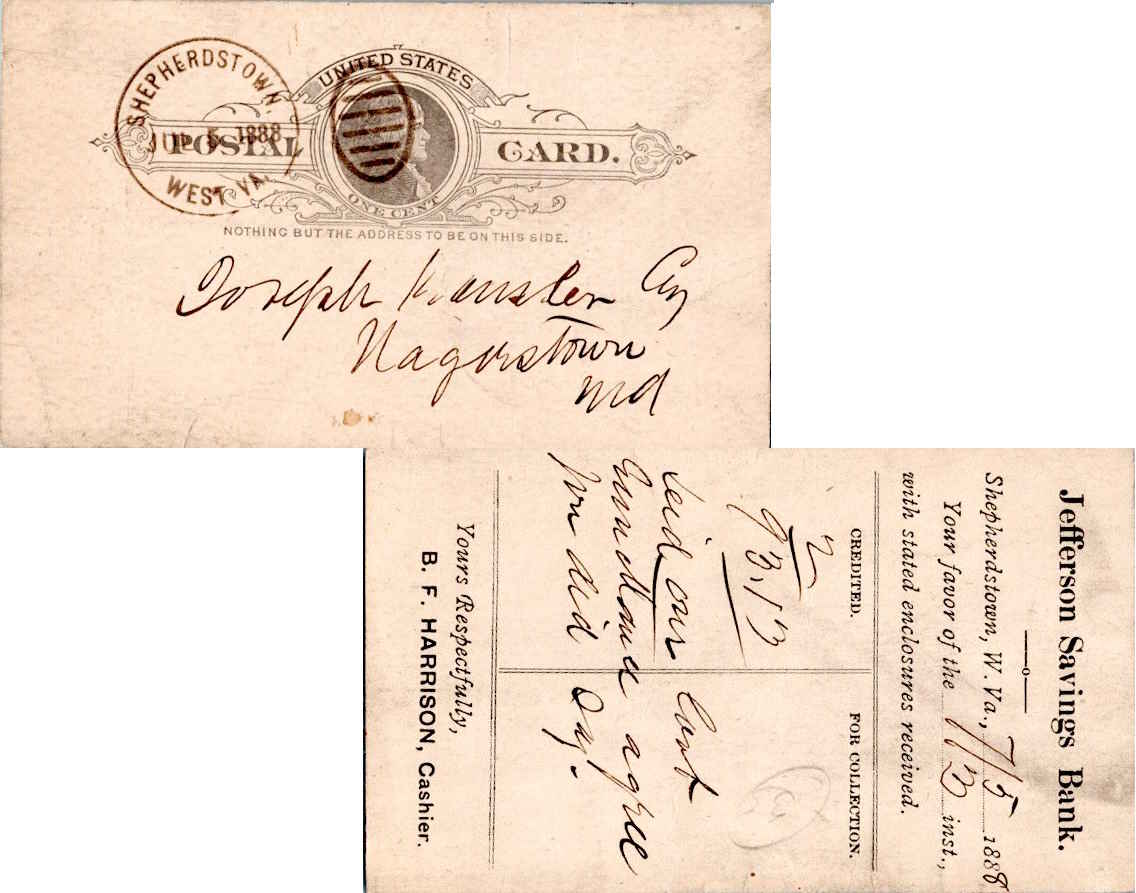 SHEPHERDSTOWN,
JUL 5 1888
WEST VA.
UNITED STATES
POSTAL CARD.
ONE CENT
NOTHING BUT THE ADDRESS TO BE ON THIS SIDE.
Joseph
Hagerstown
Md
Jefferson Savings Bank.
Shepherdstown, W. Va., 7/5 1888
Your favor of the 7/3 inst.,
with stated enclosures received.
CREDITED.
FOR COLLECTION.
2
93.13
our
agree
did
Yours Respectfully,
B. F. HARRISON, Cashier.